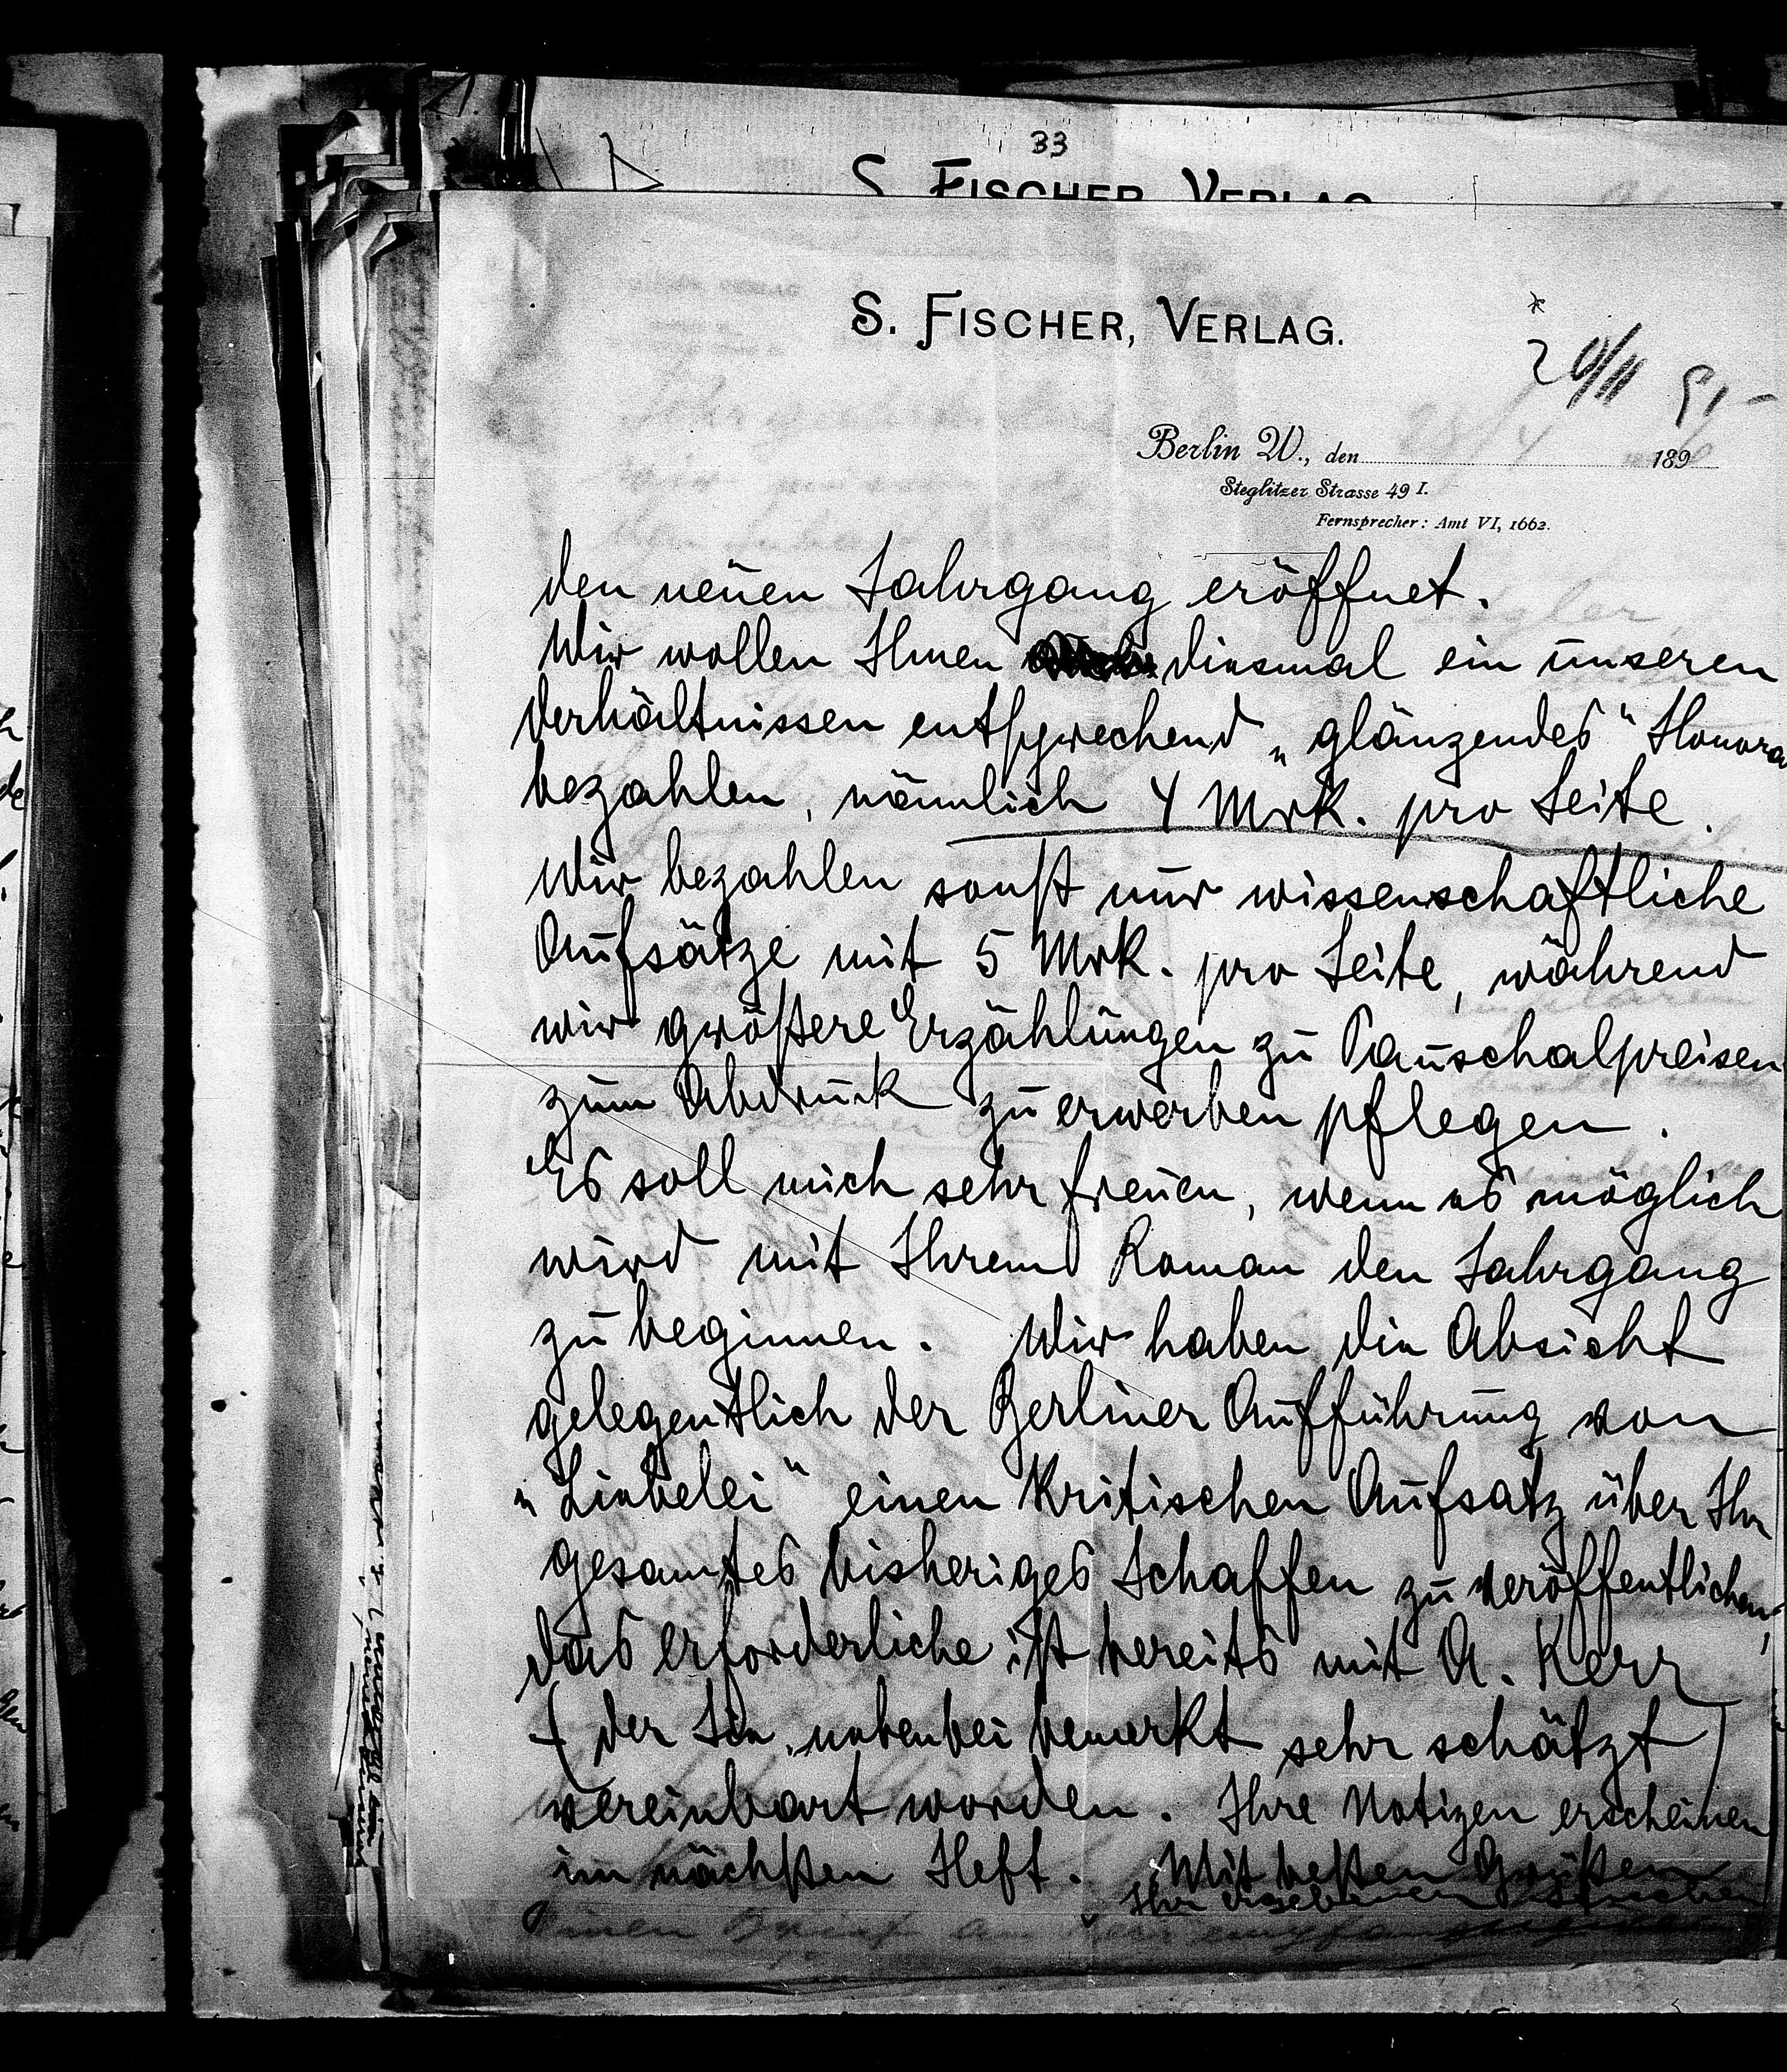 33
S. FISCHER, VERLAG.
S. FISCHER, VERLAG.
Berlin W., den 189
Steglitzer Strasse 49 I.
Fernsprecher: Amt VI, 1662.
den neuen Jahrgang eröffnet.
Wir wollen Ihnen diesmal ein unseren
Verhältnissen entsprechend „glänzendes“ Honora
bezahlen, nämlich 4 Mrk. pro Seite.
Wir bezahlen sonst nur wissenschaftliche
Aufsätze mit 5 Mrk. pro Seite, während
wir größere Erzählungen zu Pauschalpreisen
zum Abdruck zu erwerben pflegen.
Es soll mich sehr freuen, wenn es möglich
wird mit Ihrem Roman den Jahrgang
zu beginnen. Wir haben die Absicht
gelegentlich der Berliner Aufführung von
„Liebelei“ einen kritischen Aufsatz über Ihr
gesamtes bisheriges Schaffen zu veröffentlichen,
das erforderliche ist bereits mit A. Kerr
(der Sie, nebenbei bemerkt sehr schätzt)
vereinbart worden. Ihre Notizen erscheinen
im nächsten Heft. Mit besten Grüßen
Ihr ergebener SFischer